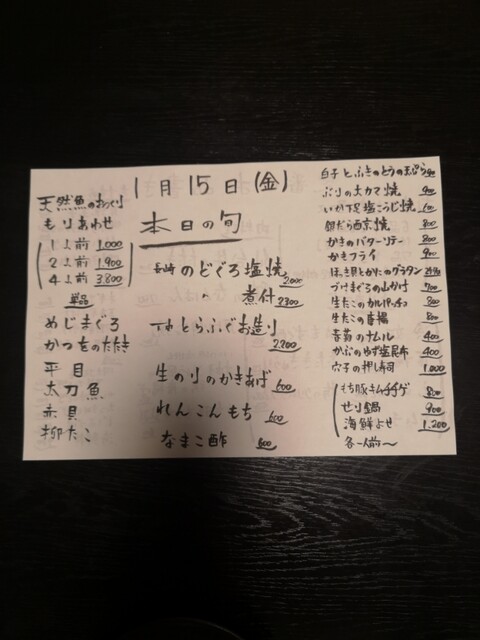 1月15日(金)
本日の旬
天然魚のおつくり
もりあわせ
1人前 1,000
2人前 1,900
4人前 3,800
単品
めじまぐろ
かつをのたたき
平目
太刀魚
赤貝
柳たこ
長崎 のどぐろ塩焼 2,000
〃 煮付 2300
とらふぐお造り 2,200
生のりのかきあげ 600
れんこんもち 600
なまこ酢 600
白子とふきのとうの天ぷら
ぶりの大カマ焼 900
いか下足塩こうじ焼
銀だら西京焼 800
かきのバターソテー 800
かきフライ 900
ほっき貝とかにのグラタン
づけまぐろの山かけ 700
生たこのカルパッチョ 800
生たこの唐揚 800
春菊のナムル 400
かぶのゆず塩昆布 400
穴子の押し寿司 1,000
もち豚キムチチゲ 800
せり鍋 900
海鮮よせ 1,200
各一人前〜